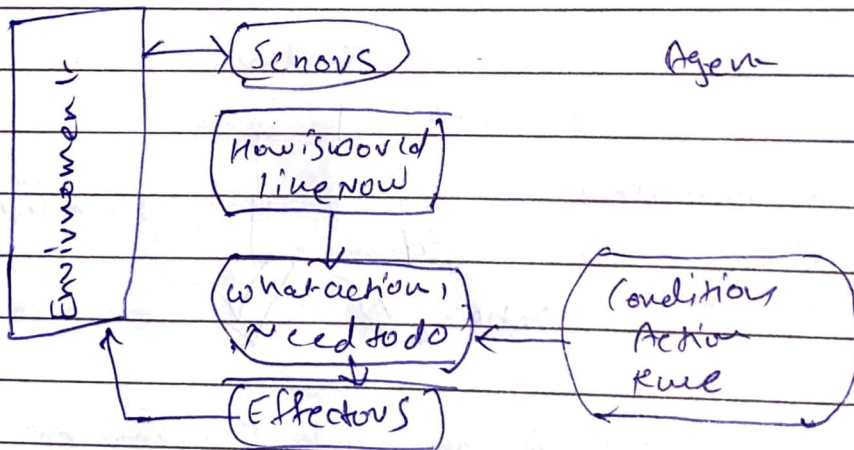 Senors
Agen
Environmen
How is world
like now
what action I
Need to do
Condition
Action
Rule
Effectors